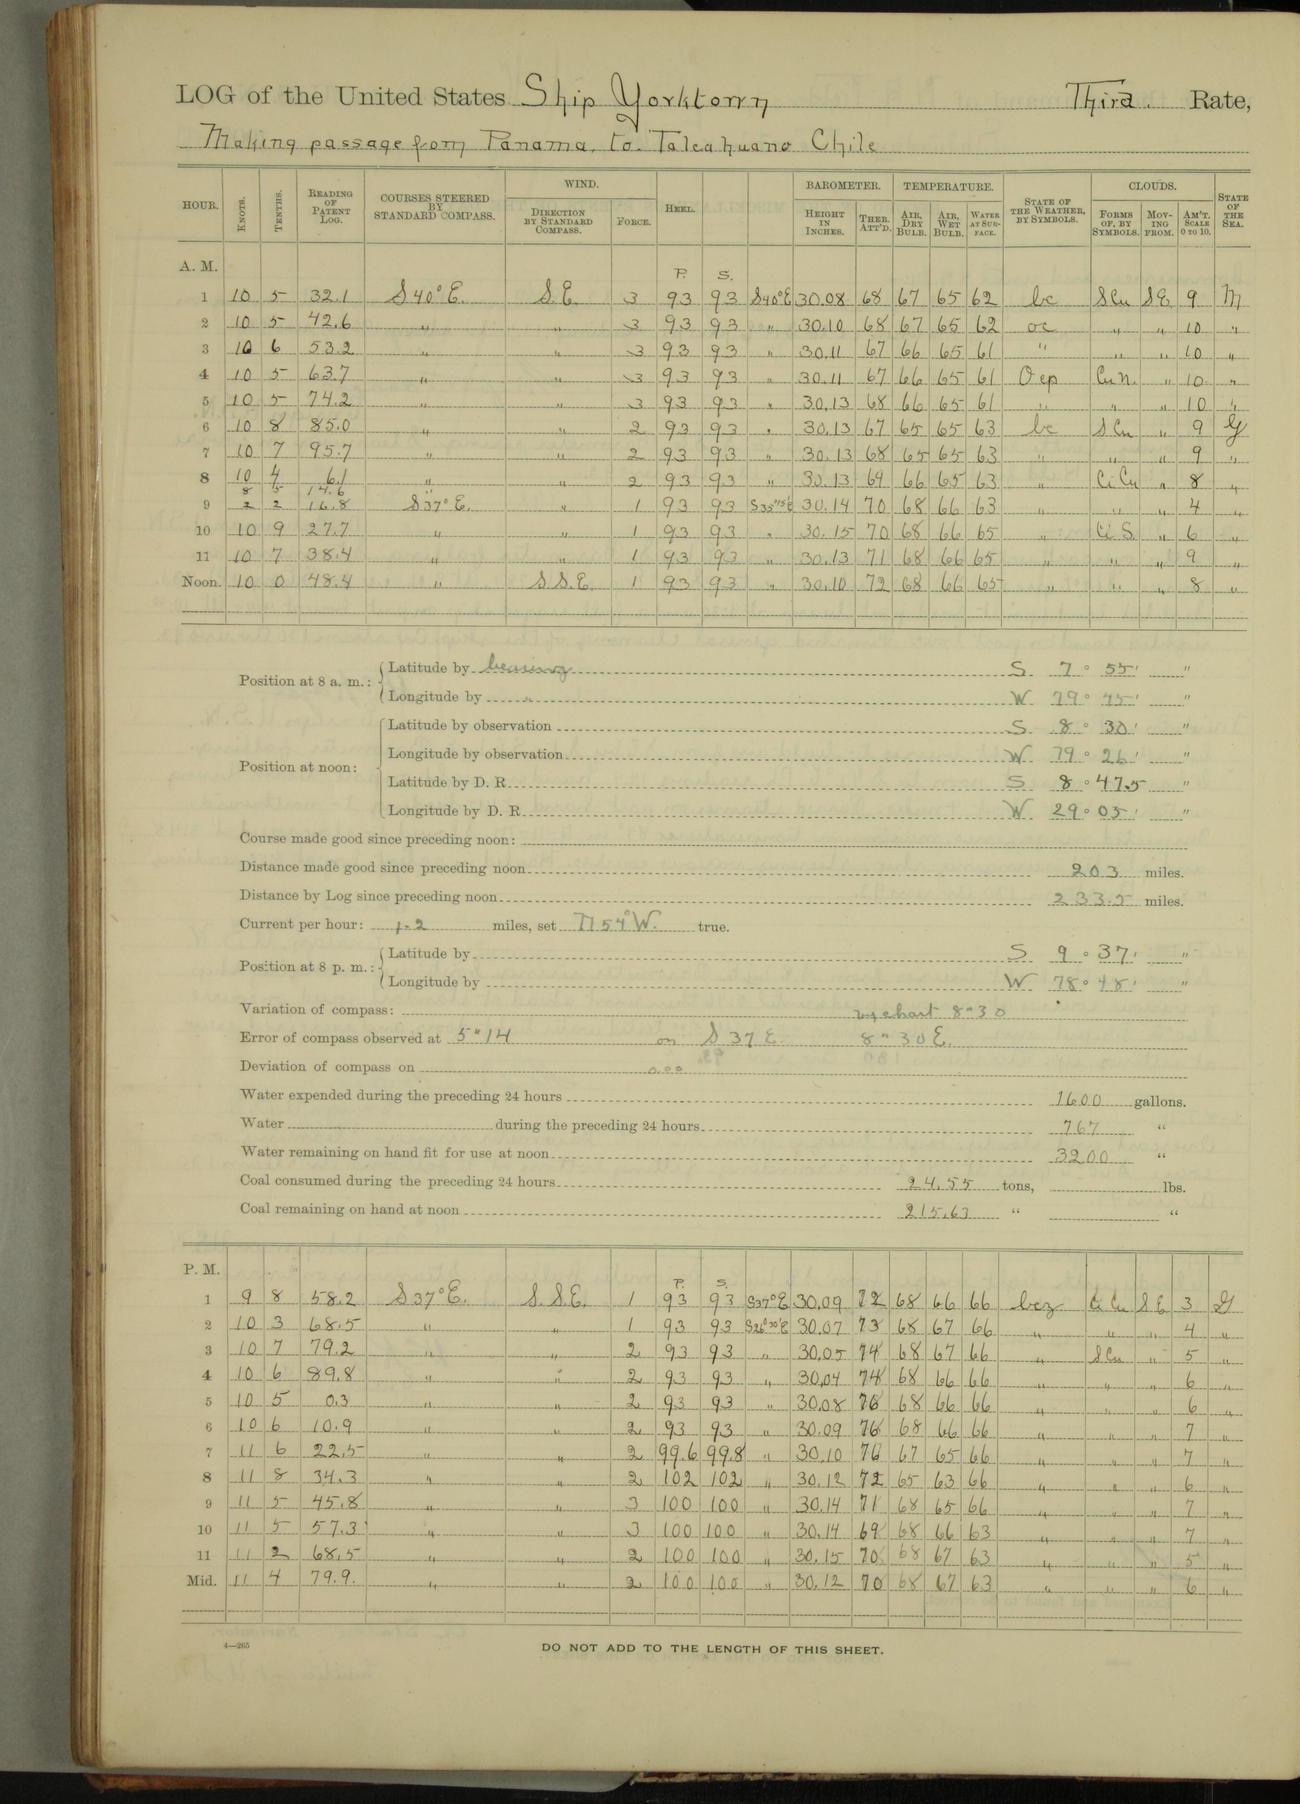 LOG of the United States Ship Yorktown Third Rate,
Making passage from Panama to Talcahuano Chile
HOUR. KNOTS. TENTHS. READING OF PATENT LOG. COURSES STEERED BY STANDARD COMPASS. WIND. DIRECTION BY STANDARD COMPASS. FORCE. HEEL. BAROMETER. HEIGHT IN INCHES. THER. ATT'D. TEMPERATURE. AIR, DRY BULB. AIR, WET BULB. WATER AT SURFACE. STATE OF THE WEATHER, BY SYMBOLS. CLOUDS. FORMS OF, BY SYMBOLS. MOVING FROM. AM'T. SCALE 0 TO 10. STATE OF THE SEA.
A. M. P. S.
1 10 5 32.1 S 40° E. S.E. 3 93 93 S40°E 30.08 68 67 65 62 bc S Cu S E 9 M
2 10 5 42.6 " " 3 93 93 " 30.10 68 67 65 62 oc " " 10 "
3 10 6 53.2 " " 3 93 93 " 30.11 67 66 65 61 " " " 10 "
4 10 5 63.7 " " 3 93 93 " 30.11 67 66 65 61 Ocp Cu N. " 10 "
5 10 5 74.2 " " 3 93 93 " 30.13 68 66 65 61 " " " 10 "
6 10 8 85.0 " " 2 93 93 " 30.13 67 65 65 63 bc S Cu " 9 G
7 10 7 95.7 " " 2 93 93 " 30.13 68 65 65 63 " " " 9 "
8 10 4 6.1 " " 2 93 93 " 30.13 69 66 65 63 " Ci Cu " 8 "
8 5 14.6 "
9 2 2 16.8 S 37° E. " 1 93 93 30.14 70 68 66 63 " " " 4 "
10 10 9 27.7 " " 1 93 93 " 30.15 70 68 66 65 " Ci S. " 6 "
11 10 7 38.4 " " 1 93 93 " 30.13 71 68 66 65 " " " 9 "
Noon. 10 0 48.4 " S.S.E. 1 93 93 " 30.10 72 68 66 65 " " " 8 "
Position at 8 a. m.: Latitude by bearing S 7° 55' "
Longitude by " W 79° 45' "
Position at noon: Latitude by observation S 8° 30' "
Longitude by observation W 79° 26' "
Latitude by D. R. S 8° 47.5 "
Longitude by D. R. W 29° 05' "
Course made good since preceding noon:
Distance made good since preceding noon 203 miles.
Distance by Log since preceding noon 233.5 miles.
Current per hour: 1.2 miles, set N 54° W. true.
Position at 8 p. m.: Latitude by S 9° 37' "
Longitude by W 78° 48' "
Variation of compass: chart 8° 30
Error of compass observed at 5 " 14 on S 37 E 8 " 30 E.
Deviation of compass on 0 00
Water expended during the preceding 24 hours 1600 gallons.
Water during the preceding 24 hours 767 "
Water remaining on hand fit for use at noon 3200 "
Coal consumed during the preceding 24 hours 24.55 tons, lbs.
Coal remaining on hand at noon 215.63 " "
P. M. P. S.
1 9 8 58.2 S 37° E. S. S. E. 1 93 93 S37°E 30.09 72 68 66 66 bcz Ci Cu S E 3 G
2 10 3 68.5 " " 1 93 93 30.07 73 68 67 66 " " " 4 "
3 10 7 79.2 " " 2 93 93 " 30.05 74 68 67 66 " S Cu " 5 "
4 10 6 89.8 " " 2 93 93 " 30.04 74 68 66 66 " " " 6 "
5 10 5 0.3 " " 2 93 93 " 30.08 76 68 66 66 " " " 6 "
6 10 6 10.9 " " 2 93 93 " 30.09 76 68 66 66 " " " 7 "
7 11 6 22.5 " " 2 99.6 99.8 " 30.10 76 67 65 66 " " " 7 "
8 11 8 34.3 " " 2 102 102 " 30.12 72 65 63 66 " " " 6 "
9 11 5 45.8 " " 3 100 100 " 30.14 71 68 65 66 " " " 7 "
10 11 5 57.3 " " 3 100 100 " 30.14 69 68 66 63 " " " 7 "
11 11 2 68.5 " " 2 100 100 " 30.15 70 68 67 63 " " " 5 "
Mid. 11 4 79.9. " " 2 100 100 " 30.12 70 68 67 63 " " " 6 "
4—265
DO NOT ADD TO THE LENGTH OF THIS SHEET.